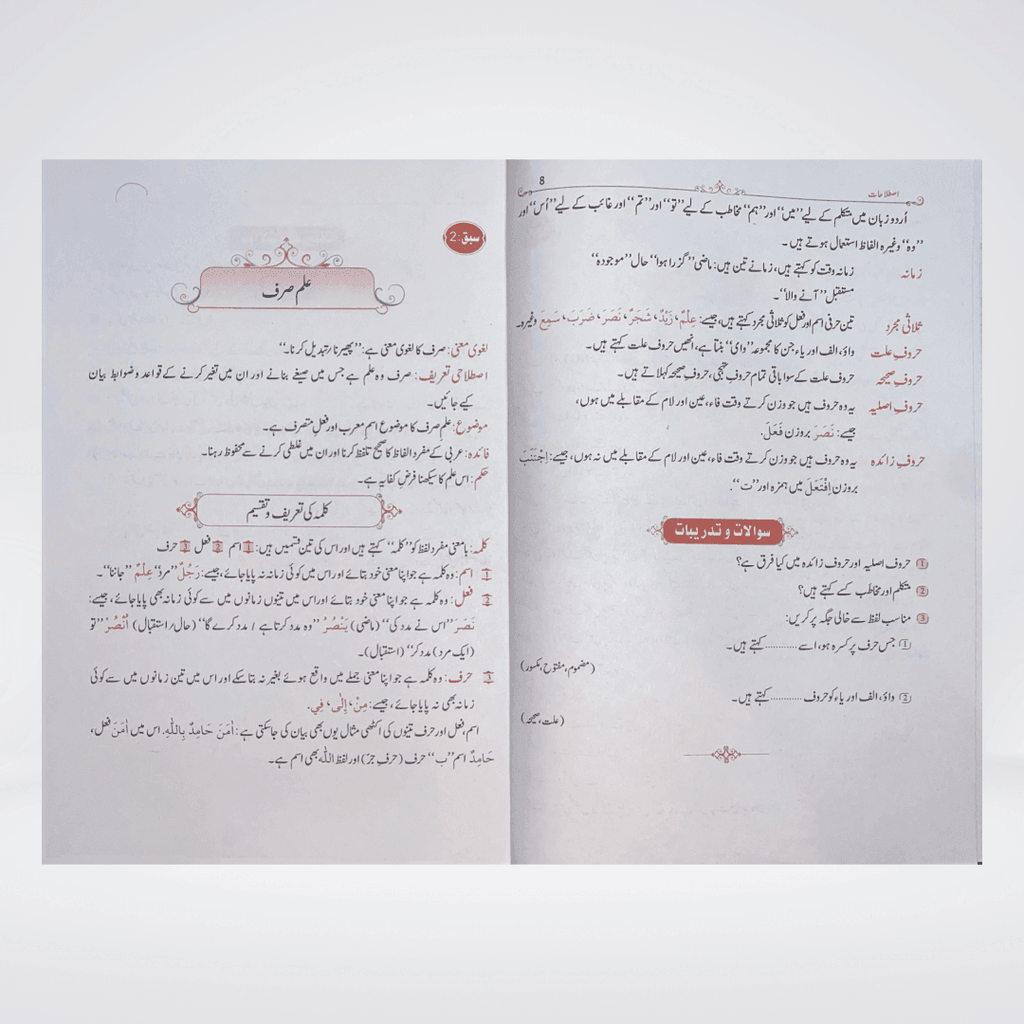 اصطلاحات
8
اُردو زبان میں متکلم کے لیے ”میں“ اور ”ہم“ مخاطب کے لیے ”تو“ اور ”تم“ اور غائب کے لیے ”اُس“ اور
”وہ“ وغیرہ الفاظ استعمال ہوتے ہیں۔
زمانہ زمانہ وقت کو کہتے ہیں، زمانے تین ہیں: ماضی ”گزرا ہوا“ حال ”موجودہ“
مستقبل ”آنے والا“۔
ثلاثی مجرد تین حرفی اسم اور فعل کو ثلاثی مجرد کہتے ہیں، جیسے: عِلْمٌ، زَیْدٌ، شَجَرٌ، نَصَرَ، ضَرَبَ، سَمِعَ وغیرہ۔
حروفِ علت واؤ، الف اور یاء جن کا مجموعہ ”وای“ بنتا ہے، انھیں حروف علت کہتے ہیں۔
حروفِ صحیحہ حروف علت کے سوا باقی تمام حروفِ تہجی، حروفِ صحیحہ کہلاتے ہیں۔
حروفِ اصلیہ یہ وہ حروف ہیں جو وزن کرتے وقت فاء، عین اور لام کے مقابلے میں ہوں،
جیسے: نَصَرَ بروزن فَعَلَ.
حروفِ زائدہ یہ وہ حروف ہیں جو وزن کرتے وقت فاء، عین اور لام کے مقابلے میں نہ ہوں، جیسے: اِجْتَنَبَ
بروزن اِفْتَعَلَ میں ہمزہ اور ”ت“۔
سوالات و تدریبات
① حروف اصلیہ اور حروف زائدہ میں کیا فرق ہے؟
② متکلم اور مخاطب کسے کہتے ہیں؟
③ مناسب لفظ سے خالی جگہ پر کریں:
① جس حرف پر کسرہ ہو، اسے ............ کہتے ہیں۔
(مضموم، مفتوح، مکسور)
② واؤ، الف اور یاء کو حروف ............ کہتے ہیں۔
(علت، صحیحہ)
سبق: 2
علم صرف
لغوی معنی: صرف کا لغوی معنی ہے: ”پھیرنا، تبدیل کرنا۔“
اصطلاحی تعریف: صرف وہ علم ہے جس میں صیغے بنانے اور ان میں تغیر کرنے کے قواعد و ضوابط بیان
کیے جائیں۔
موضوع: علم صرف کا موضوع اسم معرب اور فعلِ متصرف ہے۔
فائدہ: عربی کے مفرد الفاظ کا صحیح تلفظ کرنا اور ان میں غلطی کرنے سے محفوظ رہنا۔
حکم: اس علم کا سیکھنا فرضِ کفایہ ہے۔
کلمہ کی تعریف و تقسیم
کلمہ: بامعنی مفرد لفظ کو ”کلمہ“ کہتے ہیں اور اس کی تین قسمیں ہیں: 1 اسم 2 فعل 3 حرف
1 اسم: وہ کلمہ ہے جو اپنا معنی خود بتائے اور اس میں کوئی زمانہ نہ پایا جائے، جیسے: رَجُلٌ ”مرد“ عِلْمٌ ”جاننا“۔
2 فعل: وہ کلمہ ہے جو اپنا معنی خود بتائے اور اس میں تینوں زمانوں میں سے کوئی زمانہ بھی پایا جائے، جیسے:
نَصَرَ ”اس نے مدد کی“ (ماضی) یَنْصُرُ ”وہ مدد کرتا ہے / مدد کرے گا“ (حال/استقبال) اُنْصُرْ ”تو
(ایک مرد) مدد کر“ (استقبال)۔
3 حرف: وہ کلمہ ہے جو اپنا معنی جملے میں واقع ہوئے بغیر نہ بتا سکے اور اس میں تین زمانوں میں سے کوئی
زمانہ بھی نہ پایا جائے، جیسے: مِنْ، إِلٰی، فِي.
اسم، فعل اور حرف تینوں کی اکٹھی مثال یوں بھی بیان کی جاسکتی ہے: اٰمَنَ حَامِدٌ بِاللّٰهِ. اس میں اٰمَنَ فعل،
حَامِدٌ اسم ”ب“ حرف (حرفِ جرّ) اور لفظ اللّٰه بھی اسم ہے۔